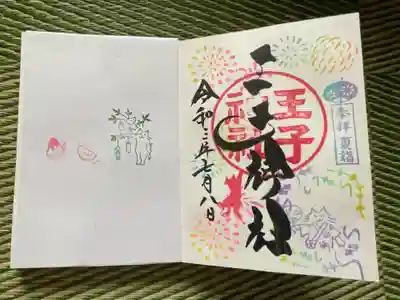 奉拝 夏詣
王子
神社
王子神社
令和三年七月八日